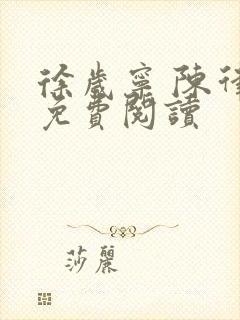 徐歲寧陳
免費閱讀
莎麗